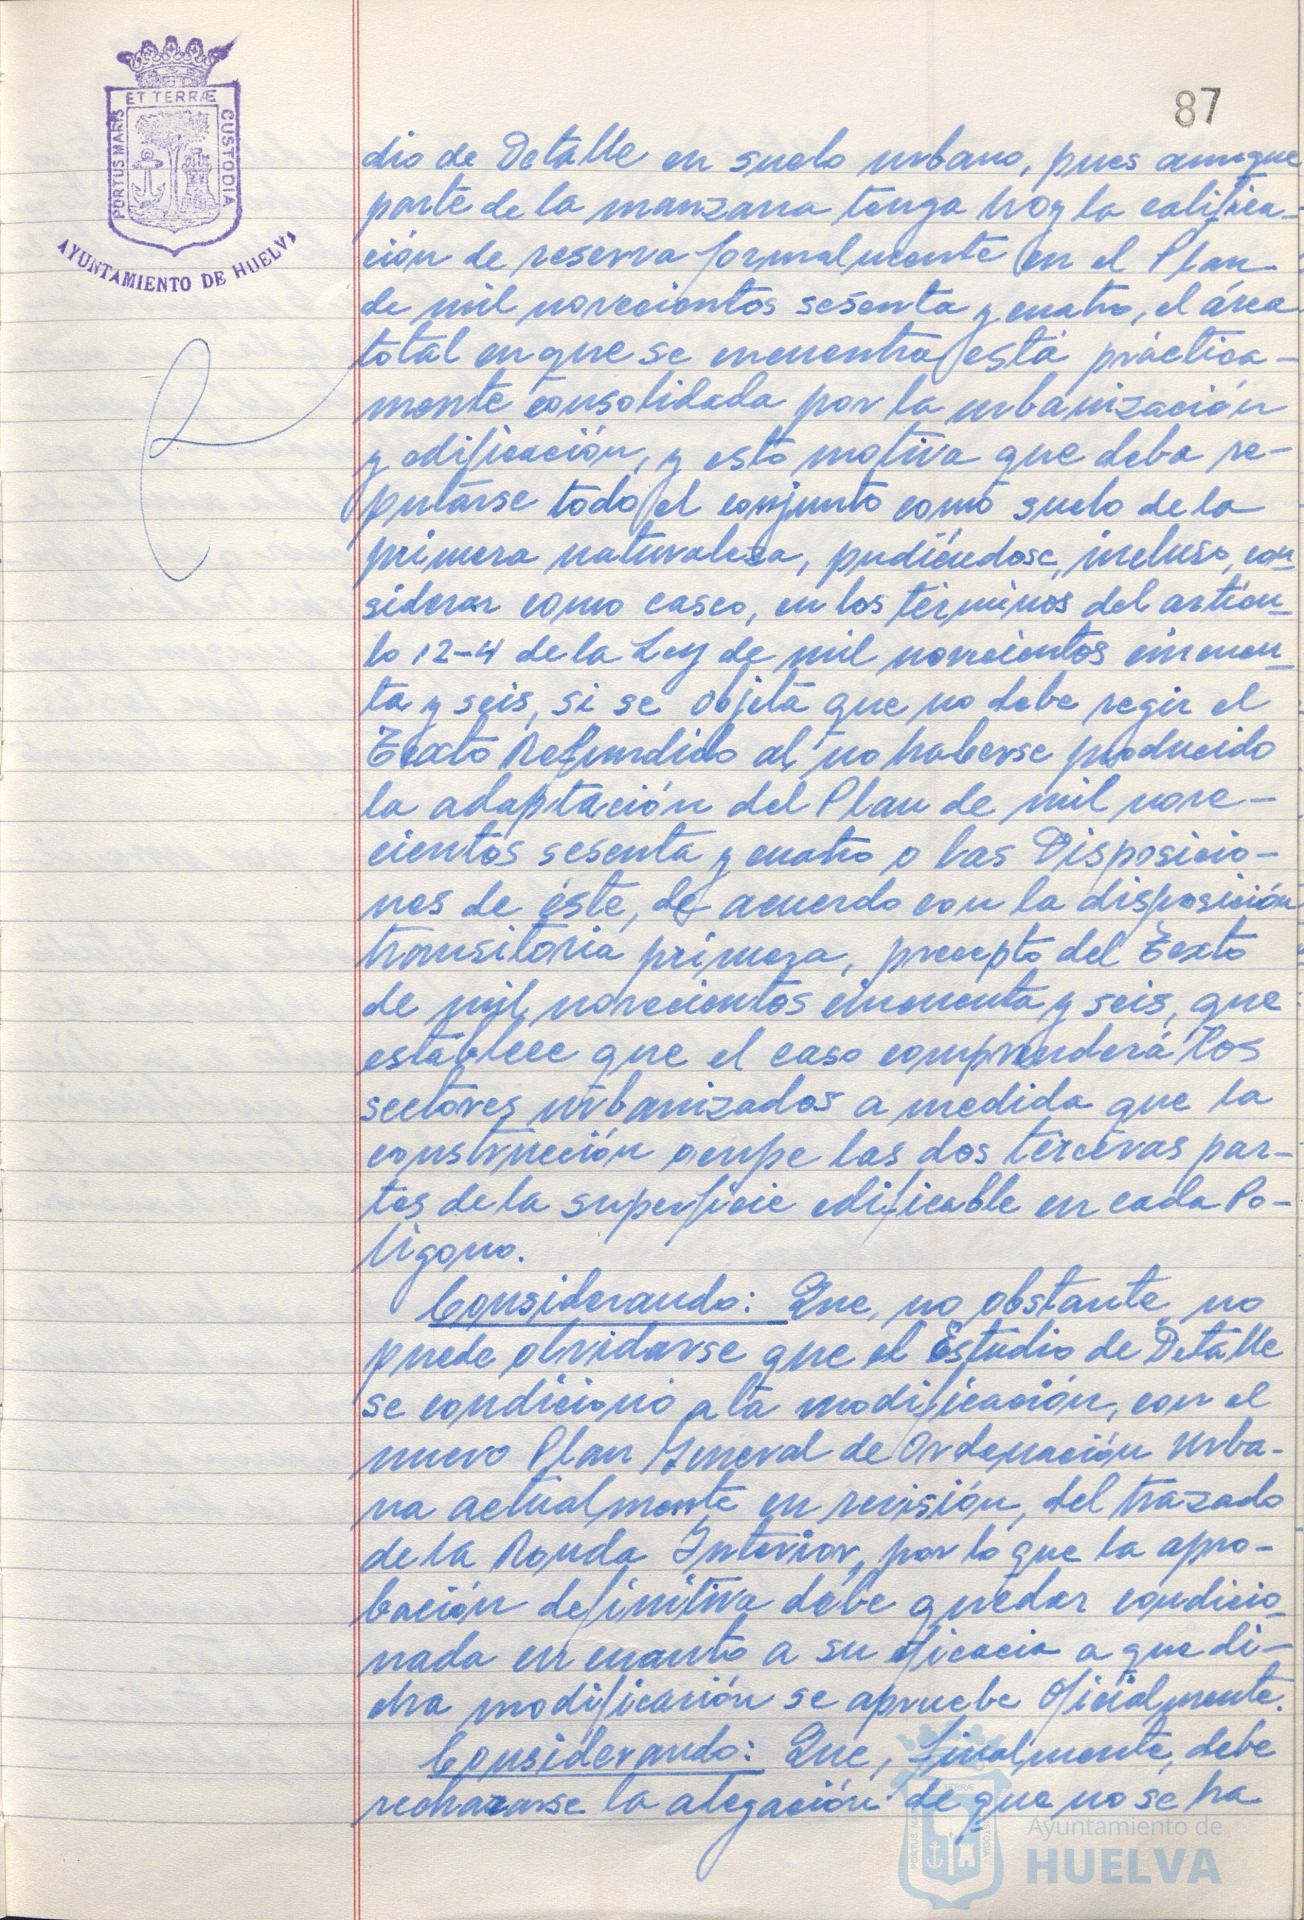 87
ET TERRÆ
PORTUS MARIS
CUSTODIA
AYUNTAMIENTO DE HUELVA
dio de Detalle en suelo urbano, pues aunque
parte de la manzana tenga hoy la califica-
ción de reserva formalmente en el Plan
de mil novecientos sesenta y cuatro, el área
total en que se encuentra está práctica-
mente consolidada por la urbanización
y edificación, y esto motiva que deba re-
putarse todo el conjunto como suelo de la
primera naturaleza, pudiéndose, incluso, con-
siderar como casco, en los términos del artícu-
lo 12-4 de la Ley de mil novecientos cincuen-
ta y seis, si se objeta que no debe regir el
Texto Refundido al no haberse producido
la adaptación del Plan de mil nove-
cientos sesenta y cuatro o las Disposicio-
nes de éste, de acuerdo con la disposición
transitoria primera, precepto del Texto
de mil novecientos cincuenta y seis, que
establece que el caso comprenderá los
sectores urbanizados a medida que la
construcción ocupe las dos terceras par-
tes de la superficie edificable en cada Po-
lígono.
Considerando: Que, no obstante, no
puede olvidarse que el Estudio de Detalle
se condicionó a la modificación, con el
nuevo Plan General de Ordenación Urba-
na actualmente en revisión, del trazado
de la Ronda Interior, por lo que la apro-
bación definitiva debe quedar condicio-
nada en cuanto a su eficacia a que di-
cha modificación se apruebe oficialmente.
Considerando: Que, finalmente, debe
rechazarse la alegación de que no se ha
Ayuntamiento de
HUELVA